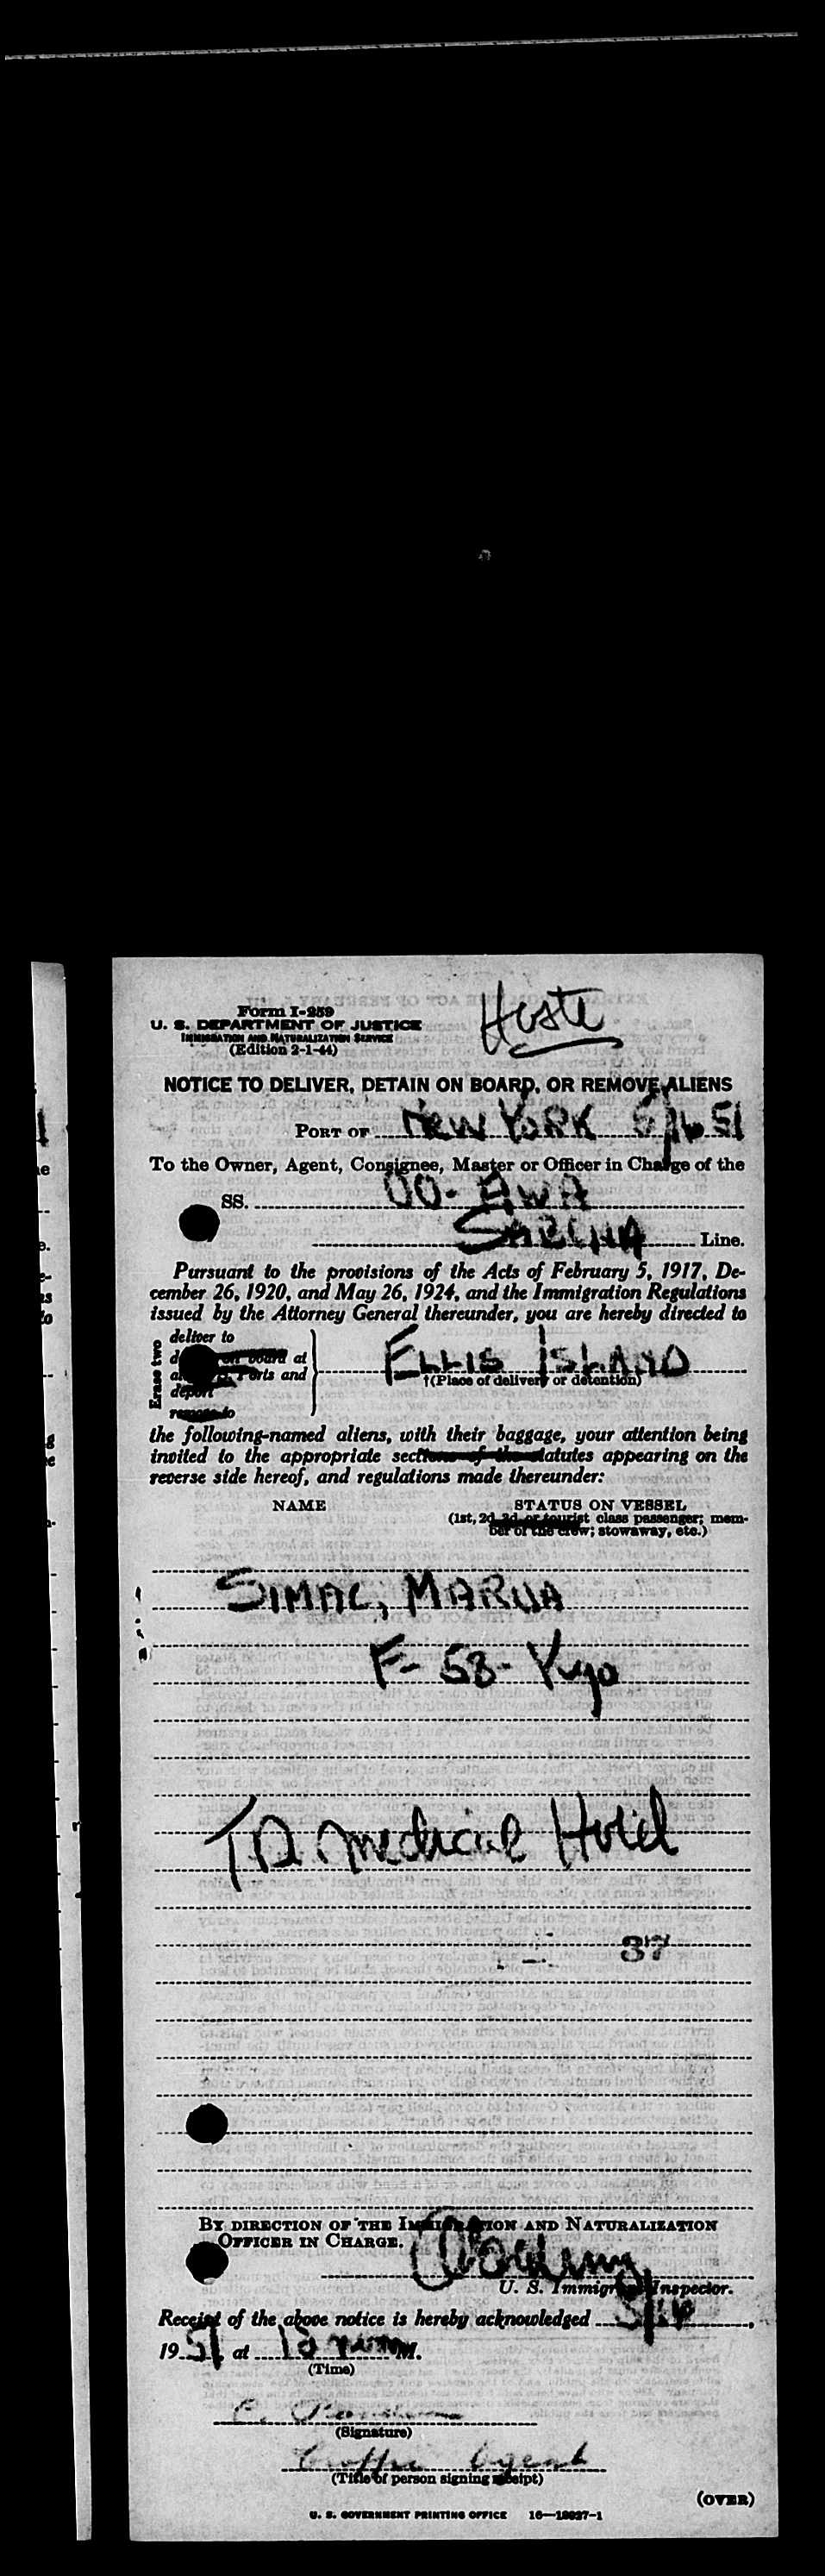 Form I-259
U. S. DEPARTMENT OF JUSTICE
IMMIGRATION AND NATURALIZATION SERVICE
(Edition 2-1-44)
NOTICE TO DELIVER, DETAIN ON BOARD, OR REMOVE ALIENS
PORT OF NEW YORK 5/16 51
To the Owner, Agent, Consignee, Master or Officer in Charge of the
SS. OO-AWA
SABENA Line.
Pursuant to the provisions of the Acts of February 5, 1917, De-
cember 26, 1920, and May 26, 1924, and the Immigration Regulations
issued by the Attorney General thereunder, you are hereby directed to
Erase two
deliver to
on board at
Ports and
deport
remove to
ELLIS ISLAND
†(Place of delivery or detention)
the following-named aliens, with their baggage, your attention being
invited to the appropriate sections of the statutes appearing on the
reverse side hereof, and regulations made thereunder:
NAME STATUS ON VESSEL
(1st, 2d, 3d, or tourist class passenger; mem-
ber of the crew; stowaway, etc.)
SIMAC, MARIJA
F- 58- Yugo
TD medical Hold
37
BY DIRECTION OF THE IMMIGRATION AND NATURALIZATION
OFFICER IN CHARGE.
U. S. Immigrant Inspector.
Receipt of the above notice is hereby acknowledged 5/16,
1951 at 10 M.
(Time)
(Signature)
Traffic Agent
(Title of person signing receipt)
(OVER)
U. S. GOVERNMENT PRINTING OFFICE 16—18027-1